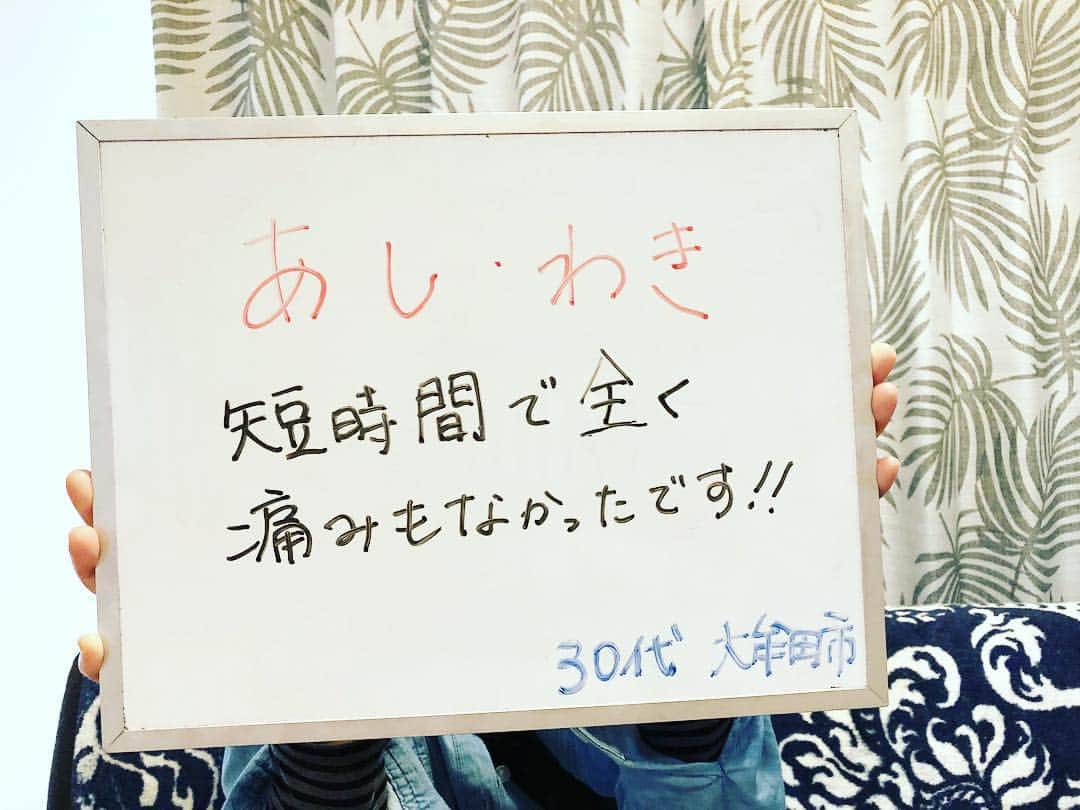 あし・わき
短時間で全く
痛みもなかったです!!
30代 大牟田市